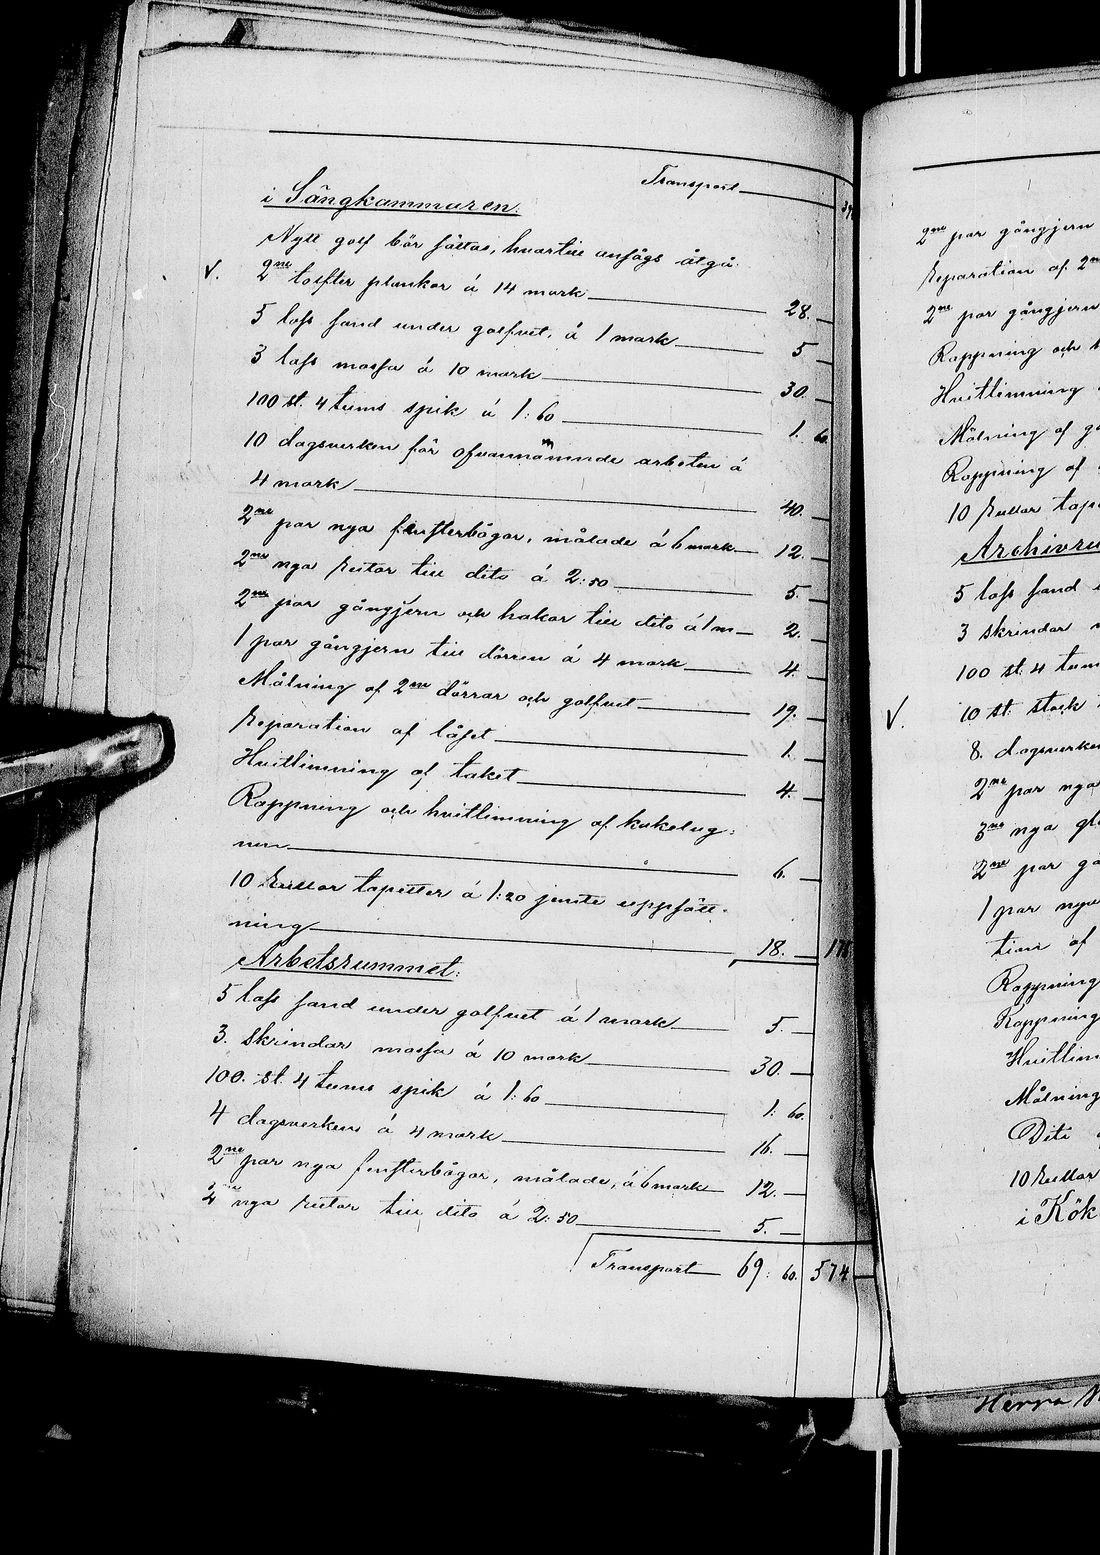 Transport
i Sängkammaren.
Nytt golf bör sättas, hvartill anságs åtgå:
V. 2ne tolfter plankor á 14 mark 28. —
5 lass sand under golfvet, á 1 mark 5 —
3 lass mossa á 10 mark 30. —
100 st. 4 tums spik á 1:60 1. 60
10 dagsverken för ofvannämnde arbeten á
4 mark 40. —
2ne par nya fensterbågar, målade á 6 mark 12. —
2ne nya rutor till dito á 2:50 5. —
2ne par gångjern och hakar till dito á 1 m 2. —
1 par gångjern till dörren á 4 mark 4. —
Målning af 2ne dörrar och golfvet 19. —
Reparation af låset 1. —
Hvitlimning af taket 4. —
Rappning och hvitlimning af kakelug:
nen 6. —
10 rullar tapeter á 1:20 jemte uppsätt-
ning 18. —
Arbetsrummet:
5 lass sand under golfvet á 1 mark 5. —
3. skrindor mossa á 10 mark 30. —
100. st. 4 tums spik á 1:60 1: 60.
4 dagsverken á 4 mark 16. —
2ne par nya fensterbågar, målade, á 6 mark 12. —
2ne nya rutor till dito á 2:50 5. —
Transport 69: 60. 574 —
2ne par gångjern
Reparation af 2ne
2ne par gångjern
Rappning och
Hvitlimning
Målning af
Rappning af
10 rullar
5 lass sand
3 skrindor
100 st. 4 tum
V. 10 st. stock
8. dagsverken
2ne par nya
3ne nya
2ne par
1 par nya
af
Rappning
Rappning
Målning
Dito
10 rullar
i Kök
Herra